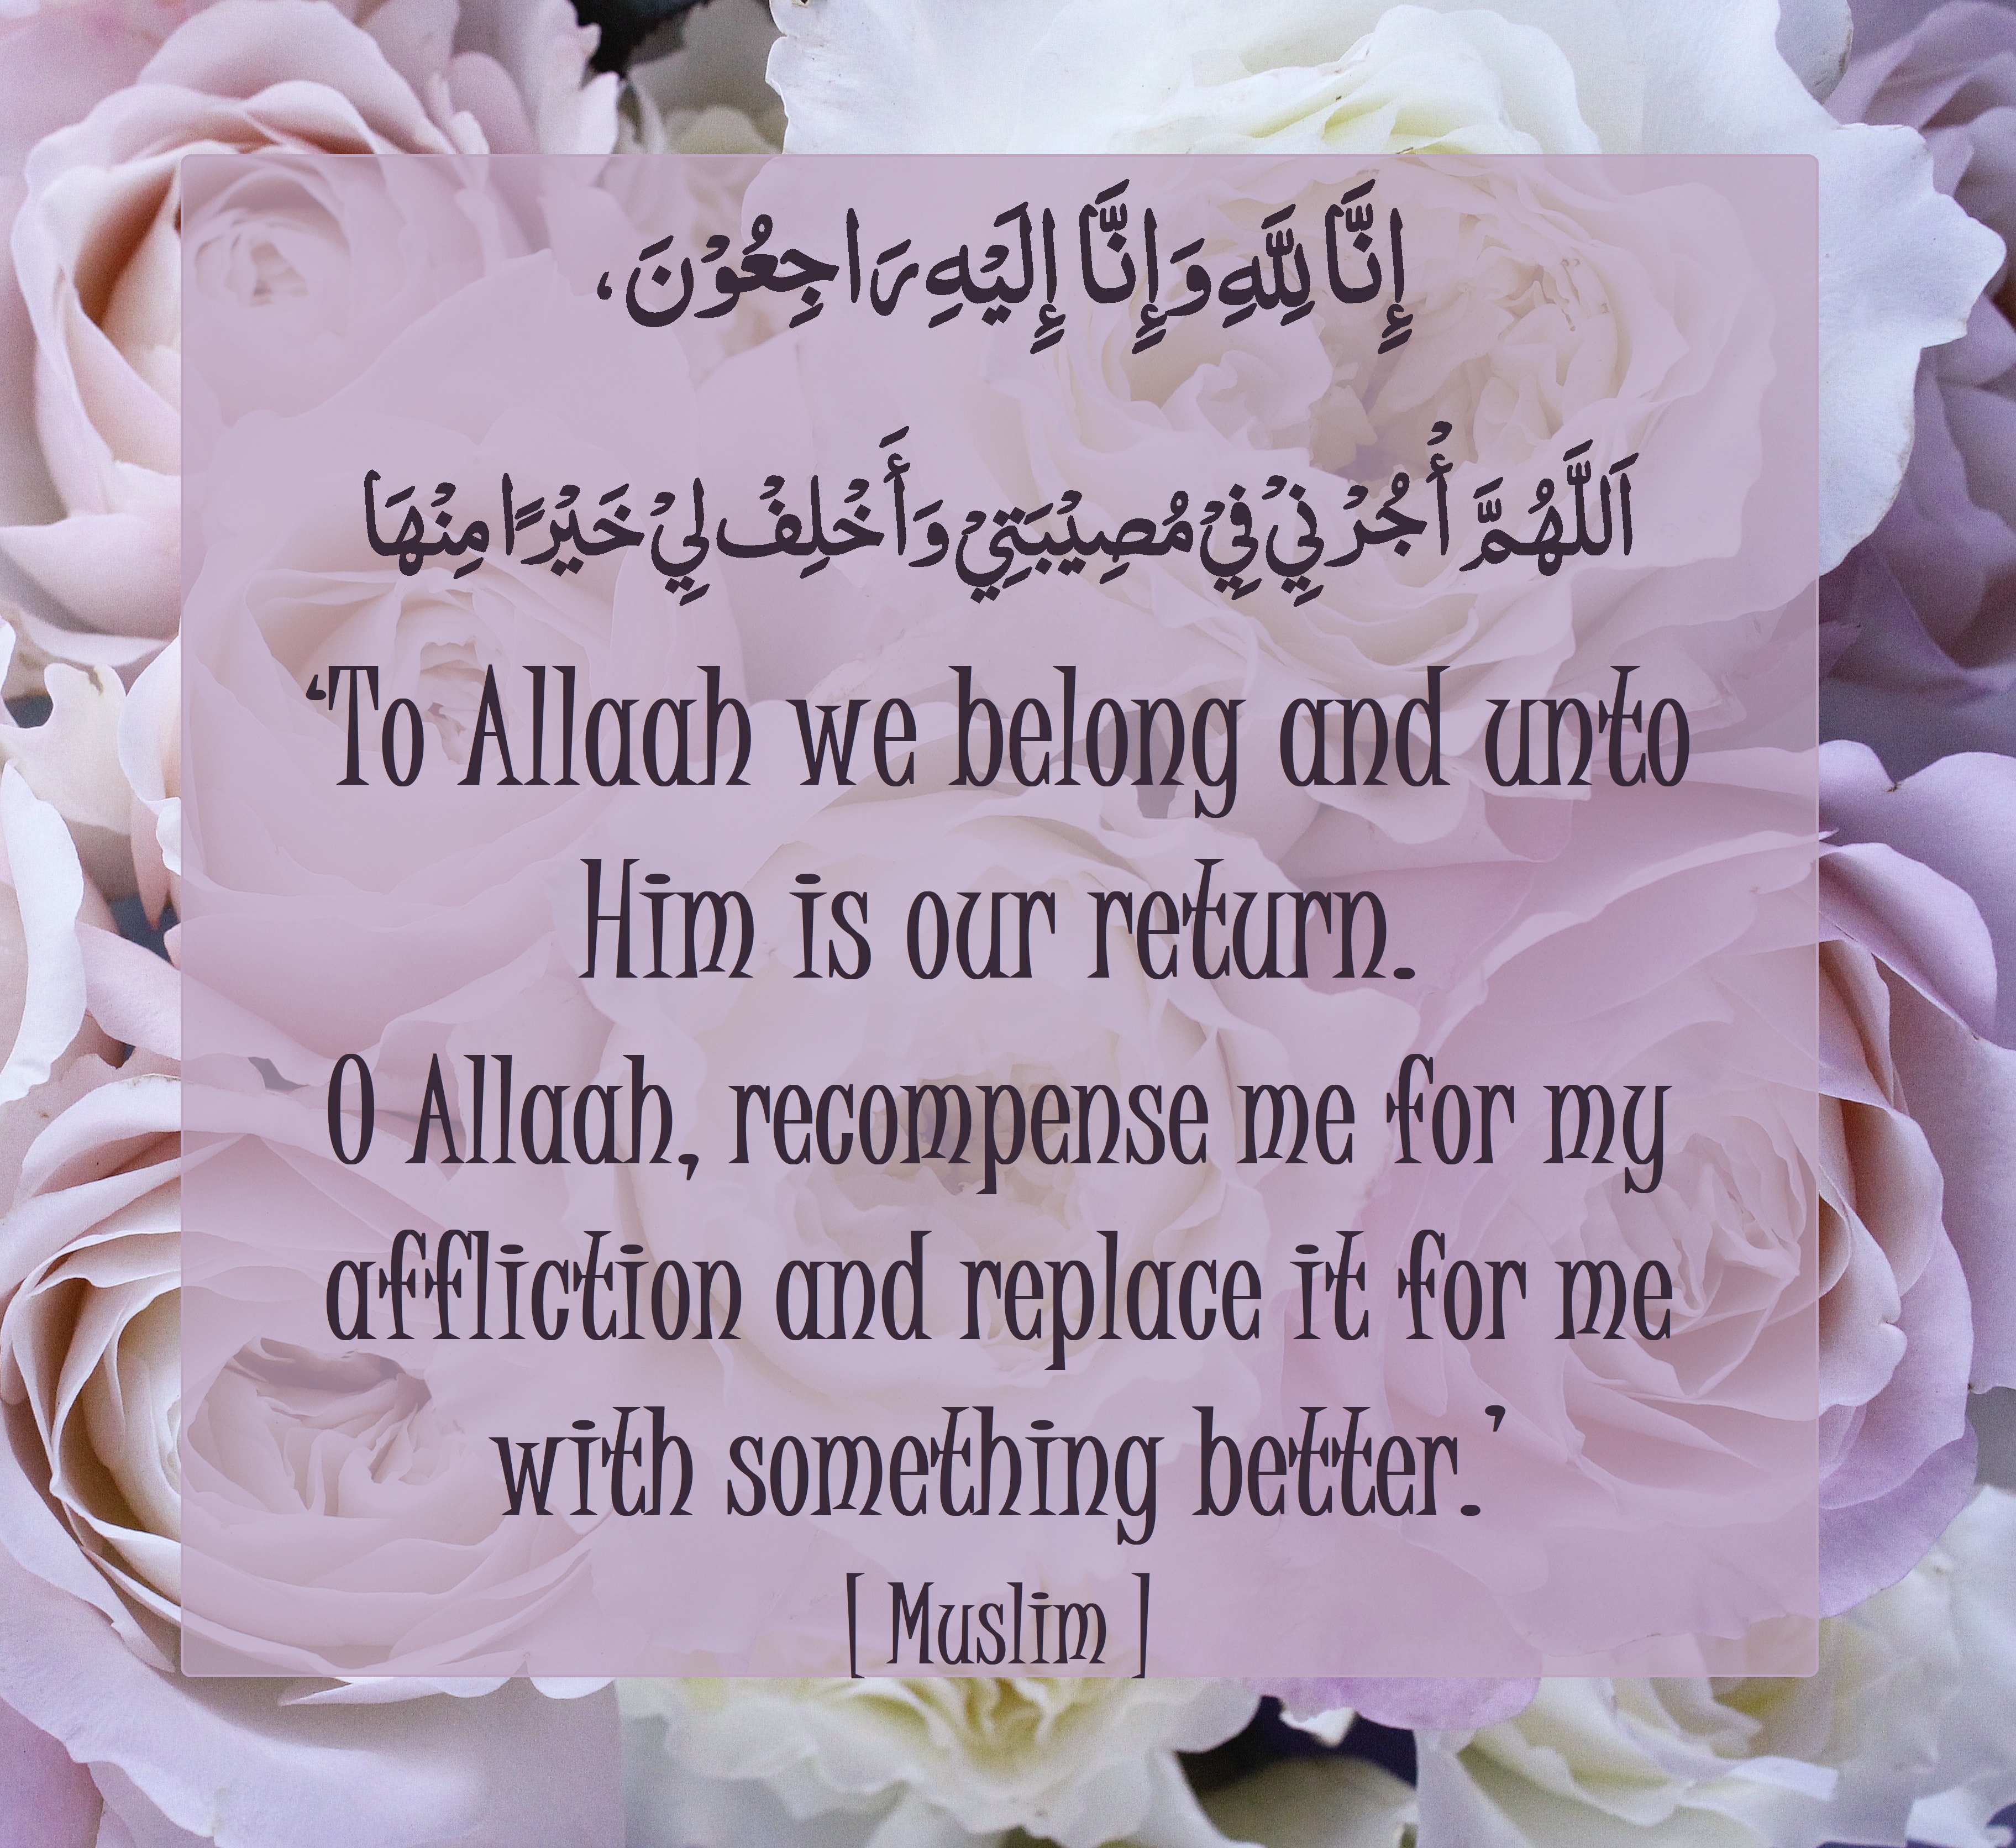 إِنَّا لِلَّهِ وَإِنَّا إِلَيْهِ رَاجِعُوْنَ،
اَللَّهُمَّ أْجُرْنِيْ فِيْ مُصِيْبَتِيْ وَأَخْلِفْ لِيْ خَيْرًا مِنْهَا
‘To Allaah we belong and unto
Him is our return.
O Allaah, recompense me for my
affliction and replace it for me
with something better.’
[ Muslim ]